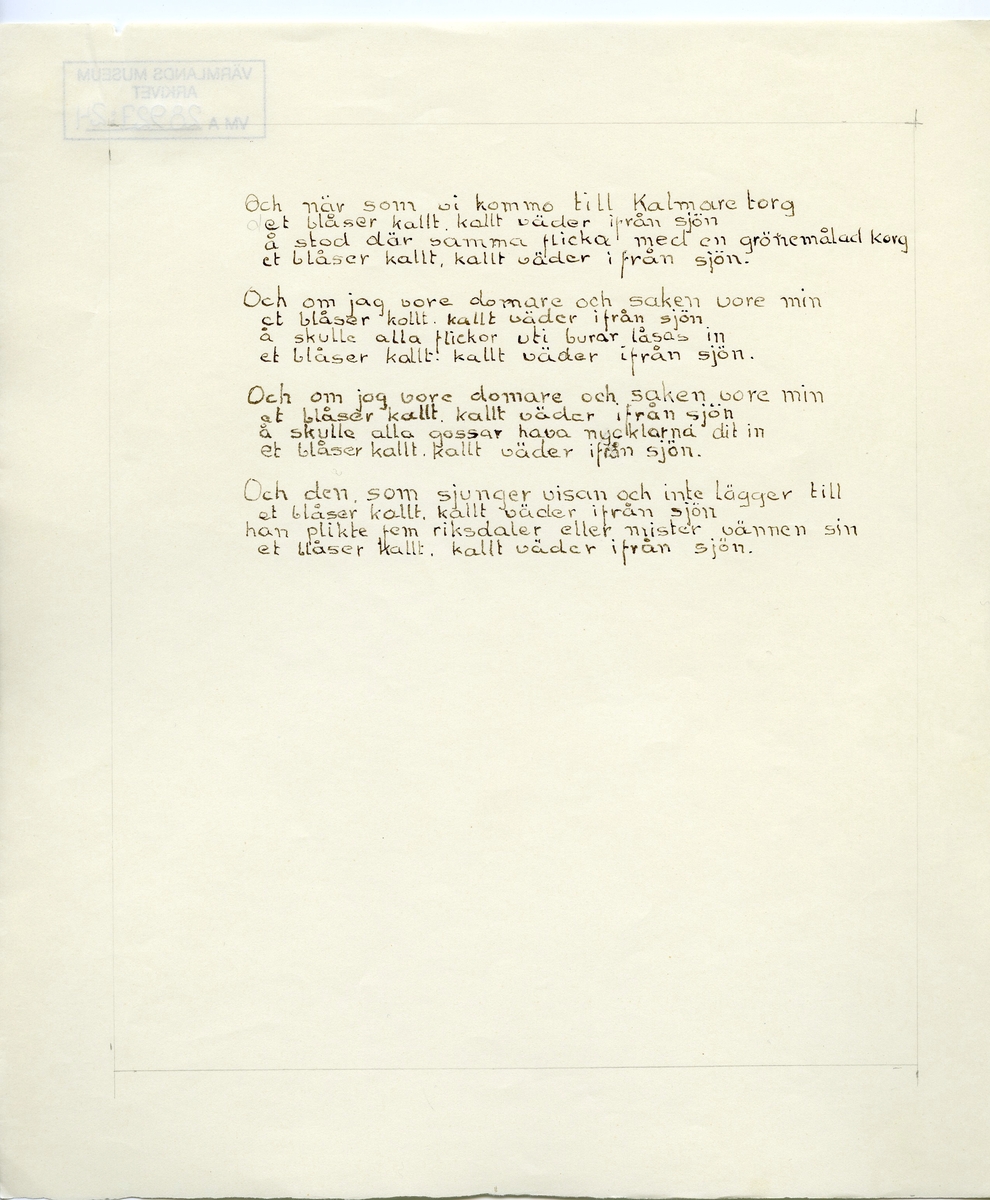 VÄRMLANDS MUSEUM
ARKIVET
VM A 28923:24
Och när som vi kommo till Kalmare torg
det blåser kallt, kallt väder ifrån sjön
å stod där samma flicka med en grönemålad korg
et blåser kallt, kallt väder ifrån sjön.
Och om jag vore domare och saken vore min
et blåser kallt. kallt väder ifrån sjön
å skulle alla flickor uti burar låsas in
et blåser kallt. kallt väder ifrån sjön.
Och om jag vore domare och saken vore min
et blåser kallt. kallt väder ifrån sjön
å skulle alla gossar hava nycklarna dit in
et blåser kallt. kallt väder ifrån sjön.
Och den, som sjunger visan och inte lägger till
et blåser kallt, kallt väder ifrån sjön
han plikte fem riksdaler eller mister vännen sin
et blåser kallt, kallt väder ifrån sjön.